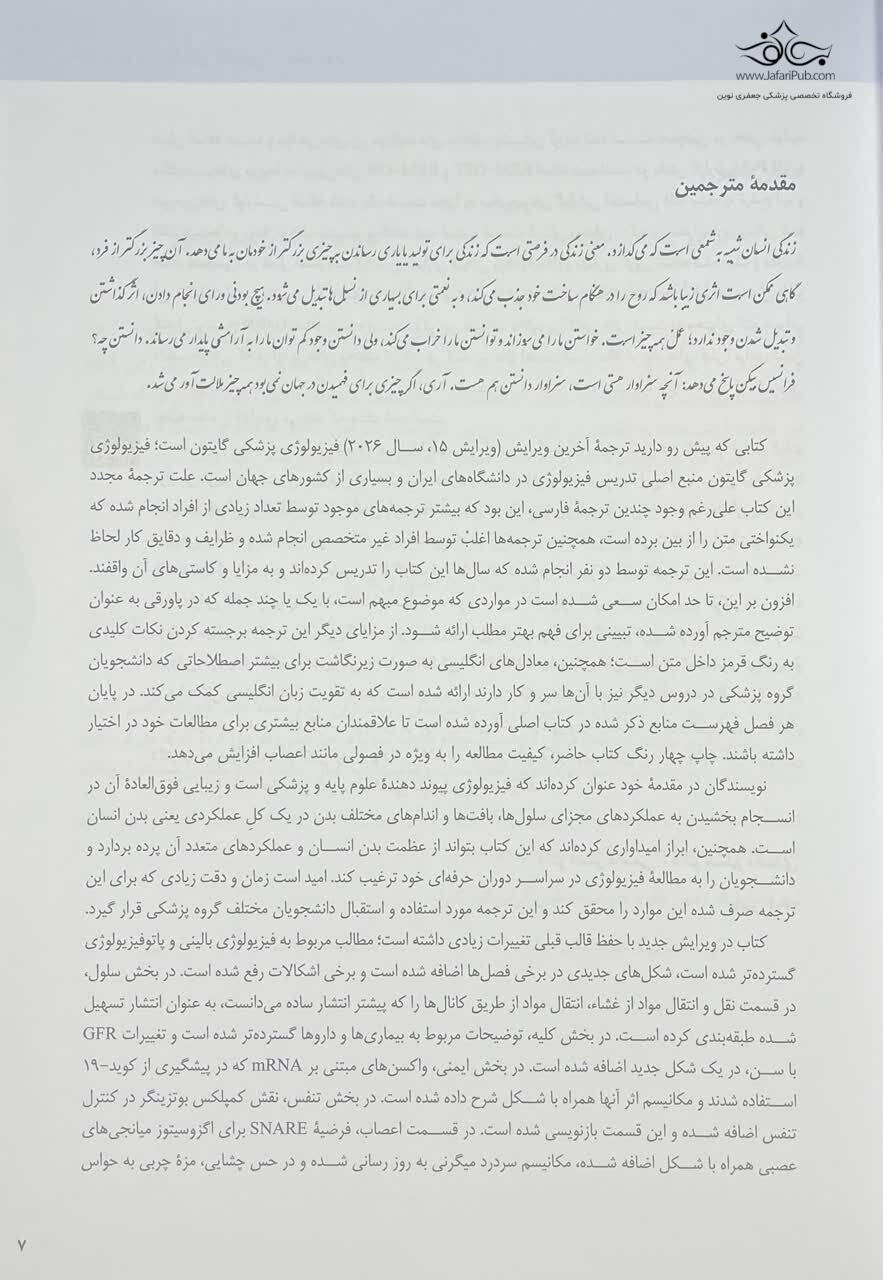 www.JafariPub.com
فروشگاه تخصصی پزشکی جعفری نوین
مقدمهٔ مترجمین
زندگی انسان شبیه به شمعی است که می‌گدازد. معنی زندگی در فرصتی است که زندگی برای تولید یا یاری رساندن به چیزی بزرگتر از خودمان به ما می‌دهد. آن چیز بزرگتر از فرد،
گاهی ممکن است اثری زیبا باشد که روح را در هنگام ساخت خود جذب می‌کند، و به نعمتی برای بسیاری از نسل‌ها تبدیل می‌شود. هیچ بودنی ورای انجام دادن، اثر گذاشتن
و تبدیل شدن وجود ندارد؛ عمل همه چیز است. خواستن ما را می‌سوزاند و توانستن ما را خراب می‌کند، ولی دانستن وجود کم توان ما را به آرامشی پایدار می‌رساند. دانستن چه؟
فرانسیس بیکن پاسخ می‌دهد: آنچه سزاوار هستی است، سزاوار دانستن هم هست. آری، اگر چیزی برای فهمیدن در جهان نمی‌بود همه چیز ملالت آور می‌شد.
کتابی که پیش رو دارید ترجمهٔ آخرین ویرایش (ویرایش ۱۵، سال ۲۰۲۶) فیزیولوژی پزشکی گایتون است؛ فیزیولوژی
پزشکی گایتون منبع اصلی تدریس فیزیولوژی در دانشگاه‌های ایران و بسیاری از کشورهای جهان است. علت ترجمهٔ مجدد
این کتاب علی‌رغم وجود چندین ترجمهٔ فارسی، این بود که بیشتر ترجمه‌های موجود توسط تعداد زیادی از افراد انجام شده که
یکنواختی متن را از بین برده است، همچنین ترجمه‌ها اغلبْ توسط افراد غیر متخصص انجام شده و ظرایف و دقایق کار لحاظ
نشده است. این ترجمه توسط دو نفر انجام شده که سال‌ها این کتاب را تدریس کرده‌اند و به مزایا و کاستی‌های آن واقفند.
افزون بر این، تا حد امکان سعی شده است در مواردی که موضوع مبهم است، با یک یا چند جمله که در پاورقی به عنوان
توضیح مترجم آورده شده، تبیینی برای فهم بهتر مطلب ارائه شود. از مزایای دیگر این ترجمه برجسته کردن نکات کلیدی
به رنگ قرمز داخل متن است؛ همچنین، معادل‌های انگلیسی به صورت زیرنگاشت برای بیشتر اصطلاحاتی که دانشجویان
گروه پزشکی در دروس دیگر نیز با آن‌ها سر و کار دارند ارائه شده است که به تقویت زبان انگلیسی کمک می‌کند. در پایان
هر فصل فهرست منابع ذکر شده در کتاب اصلی آورده شده است تا علاقمندان منابع بیشتری برای مطالعات خود در اختیار
داشته باشند. چاپ چهار رنگ کتاب حاضر، کیفیت مطالعه را به ویژه در فصولی مانند اعصاب افزایش می‌دهد.
نویسندگان در مقدمهٔ خود عنوان کرده‌اند که فیزیولوژی پیوند دهندهٔ علوم پایه و پزشکی است و زیبایی فوق‌العادهٔ آن در
انسجام بخشیدن به عملکردهای مجزای سلول‌ها، بافت‌ها و اندام‌های مختلف بدن در یک کلِ عملکردی یعنی بدن انسان
است. همچنین، ابراز امیداواری کرده‌اند که این کتاب بتواند از عظمت بدن انسان و عملکردهای متعدد آن پرده بردارد و
دانشجویان را به مطالعهٔ فیزیولوژی در سراسر دوران حرفه‌ای خود ترغیب کند. امید است زمان و دقت زیادی که برای این
ترجمه صرف شده این موارد را محقق کند و این ترجمه مورد استفاده و استقبال دانشجویان مختلف گروه پزشکی قرار گیرد.
کتاب در ویرایش جدید با حفظ قالب قبلی تغییرات زیادی داشته است؛ مطالب مربوط به فیزیولوژی بالینی و پاتوفیزیولوژی
گسترده‌تر شده است، شکل‌های جدیدی در برخی فصل‌ها اضافه شده است و برخی اشکالات رفع شده است. در بخش سلول،
در قسمت نقل و انتقال مواد از غشاء، انتقال مواد از طریق کانال‌ها را که پیشتر انتشار ساده می‌دانست، به عنوان انتشار تسهیل
شده طبقه‌بندی کرده است. در بخش کلیه، توضیحات مربوط به بیماری‌ها و داروها گسترده‌تر شده است و تغییرات GFR
با سن، در یک شکل جدید اضافه شده است. در بخش ایمنی، واکسن‌های مبتنی بر mRNA که در پیشگیری از کوید-۱۹
استفاده شدند و مکانیسم اثر آنها همراه با شکل شرح داده شده است. در بخش تنفس، نقش کمپلکس بوتزینگر در کنترل
تنفس اضافه شده و این قسمت بازنویسی شده است. در قسمت اعصاب، فرضیهٔ SNARE برای اگزوسیتوز میانجی‌های
عصبی همراه با شکل اضافه شده، مکانیسم سردرد میگرنی به روز رسانی شده و در حس چشایی، مزهٔ چربی به حواس
۷